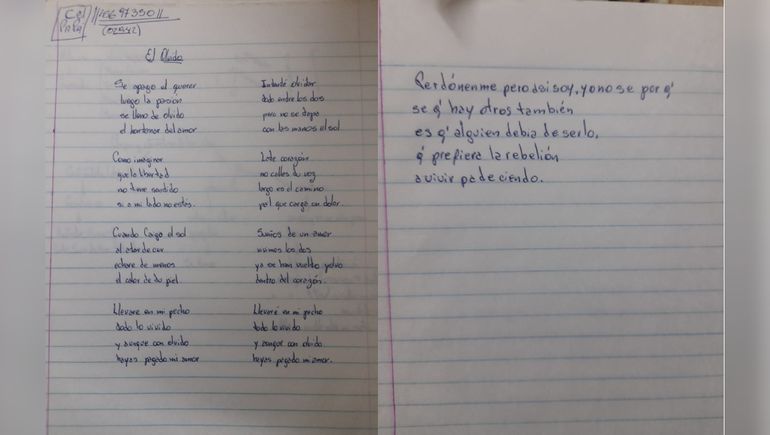 Cel
Papa
(02942)
El Olvido
Se apago el querer
luego la pasion
se lleno de olvido
el del amor
Como imaginar
que la libertad
no tiene sentido
si a mi lado no estás.
Cuando Caiga el sol
al atardecer
echare de menos
el calor de tu piel.
Llevare en mi pecho
todo lo vivido
y aunque con olvido
hayas pagado mi amor
Intenté olvidar
todo entre los dos
pero no se tapa
con las manos el sol
Late corazón
no calles tu voz
largo es el camino
pal que carga un dolor.
Sueños de un amor
vivimos los dos
ya se han vuelto polvo
dentro del corazón.
Llevaré en mi pecho
todo lo vivido
y aunque con olvido
hayas pagado mi amor.
Perdónenme pero asi soy, yo no se por q'
se q' hay otros también
es q' alguien debia de serlo,
q' prefiera la rebelión
a vivir padeciendo.